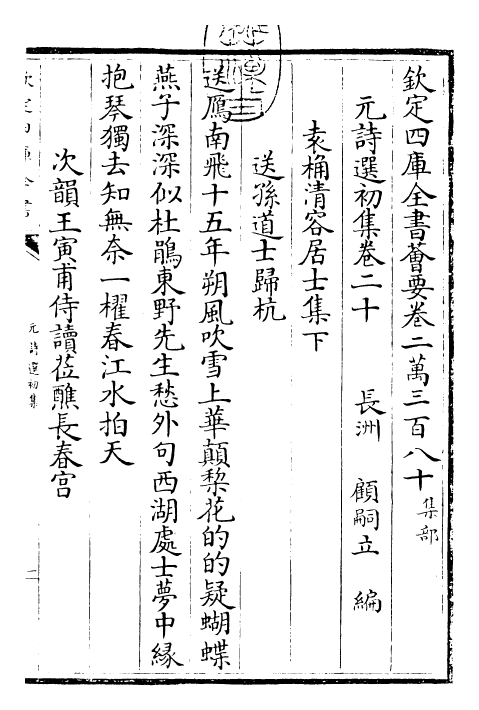 欽定四庫全書薈要卷二萬三百八十集部
元詩選初集卷二十　長洲　顧嗣立　編
袁桷清容居士集下
送孫道士歸杭
送鴈南飛十五年朔風吹雪上華顛棃花的的疑蝴蝶
燕子深深似杜鵑東野先生愁外句西湖處士夢中緣
抱琴獨去知無奈一櫂春江水拍天
次韻王寅甫侍讀蒞醮長春宫
元詩選初集